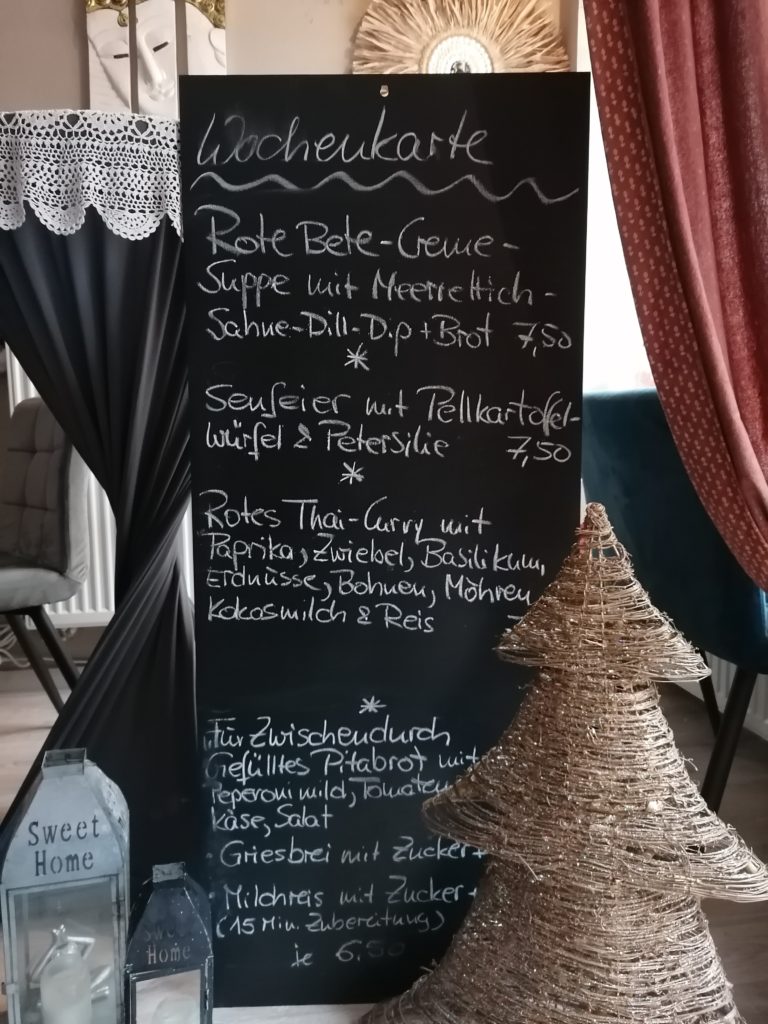 Wochenkarte
Rote Bete-Creme-
Suppe mit Meerrettich-
Sahne-Dill-Dip + Brot 7,50
*
Senfeier mit Pellkartoffel-
würfel & Petersilie 7,50
*
Rotes Thai-Curry mit
Paprika, Zwiebel, Basilikum,
Erdnüsse, Bohnen, Möhren
Kokosmilch & Reis
*
Für Zwischendurch
Gefülltes Pitabrot mit
Peperoni mild, Tomaten
Käse, Salat
· Griesbrei mit Zucker +
· Milchreis mit Zucker +
(15 Min. Zubereitung)
je 6,50
Sweet
Home
Sweet
Home